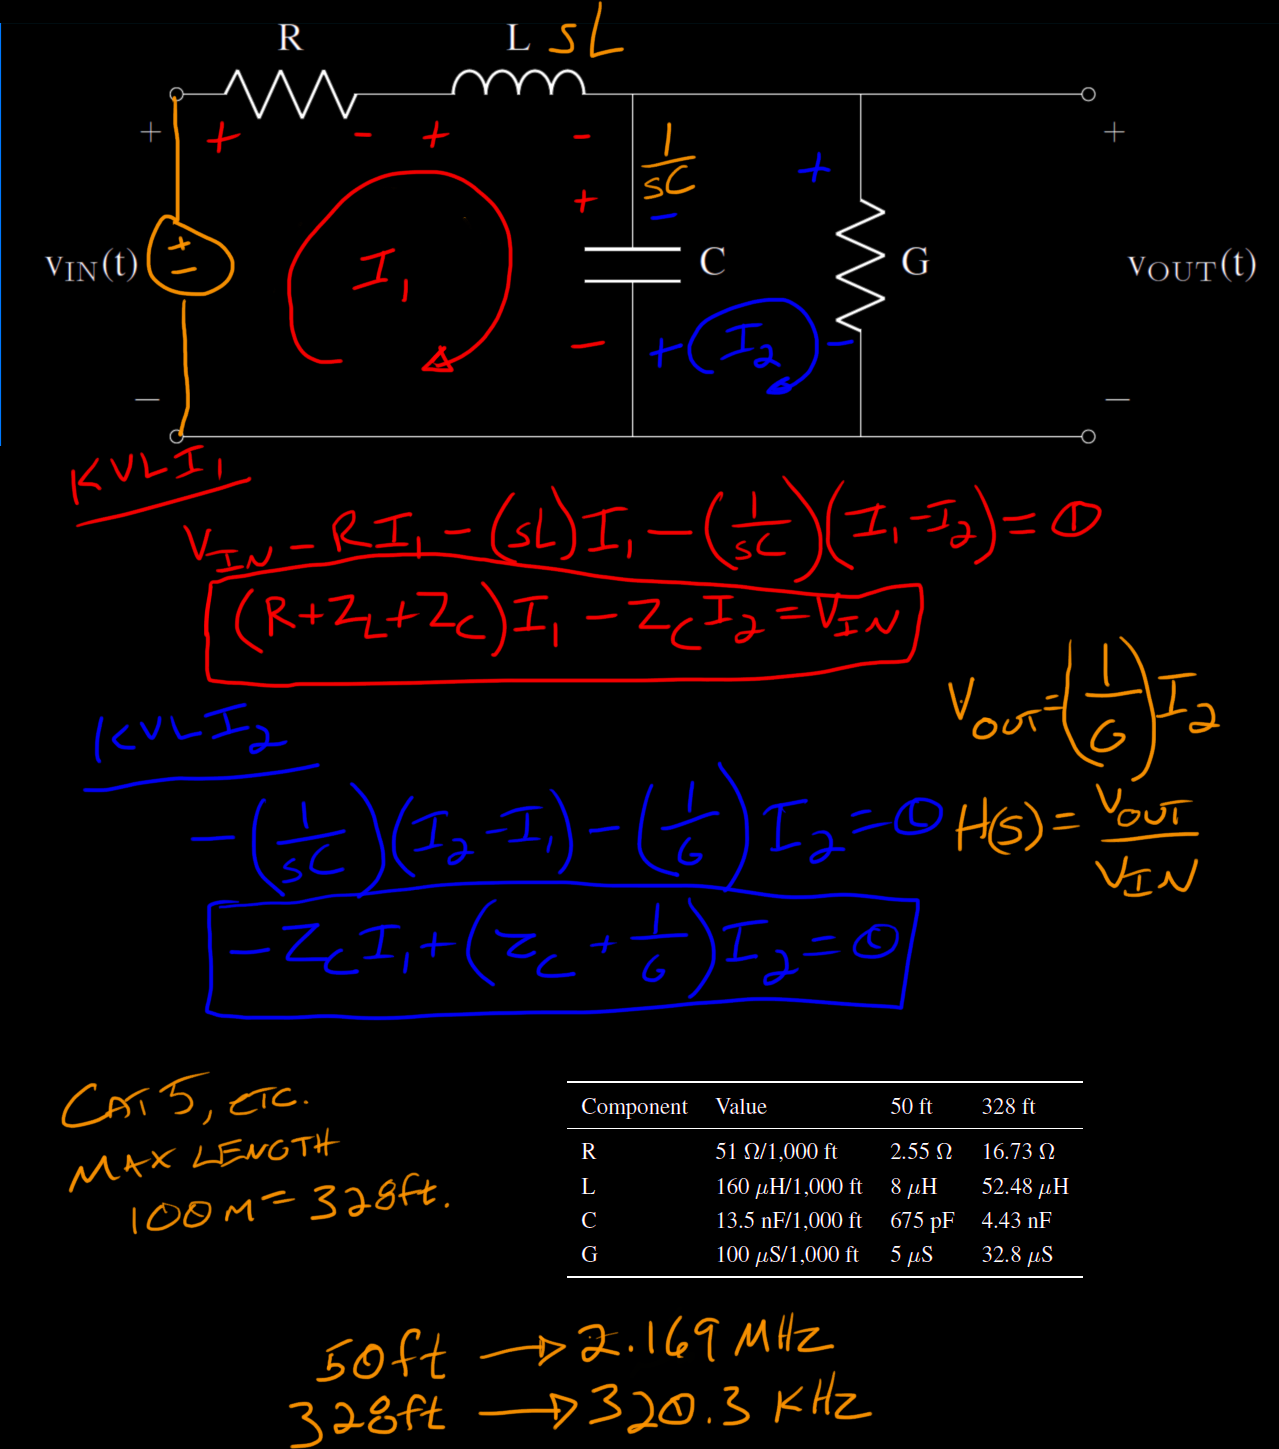 R L sL
+ + - + - +
1/sC + +
+ -
v_IN(t) + - I₁ C G v_OUT(t)
- + I₂ -
- -
KVL I₁
V_IN - R I₁ - (sL) I₁ - (1/sC)(I₁ - I₂) = 0
(R + Z_L + Z_C) I₁ - Z_C I₂ = V_IN
V_OUT = (1/G) I₂
KVL I₂
-(1/sC)(I₂ - I₁) - (1/G) I₂ = 0
H(s) = V_OUT/V_IN
-Z_C I₁ + (Z_C + 1/G) I₂ = 0
CAT 5, ETC.
MAX LENGTH
100 M = 328 ft.
Component Value 50 ft 328 ft
R 51 Ω/1,000 ft 2.55 Ω 16.73 Ω
L 160 μH/1,000 ft 8 μH 52.48 μH
C 13.5 nF/1,000 ft 675 pF 4.43 nF
G 100 μS/1,000 ft 5 μS 32.8 μS
50ft → 2.169 MHz
328ft → 320.3 KHz